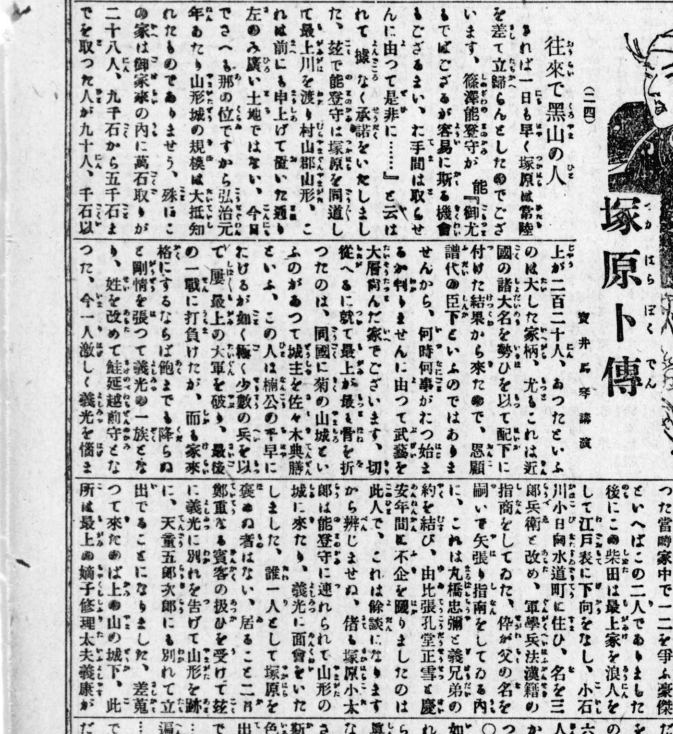 塚原卜傳
寶井馬琴講演
(二四)
往來で黑山の人
されば一日も早く塚原は常陸
を差て立歸らんとしたのでござ
います、篠澤能登守が　能『御尤
もでござるが容易に斯る機會
もござるまい、た手間は取らせ
んに由つて是非に……』と云は
れて據なく承諾をいたしまし
た、玆で能登守は塚原を同道し
て最上川を渡り村山郡山形、こ
れは前にも申上げて置いた通り
左のみ廣い土地ではない、今日
でさへも那の位ですから弘治元
年あたり山形城の規模は大抵知
れたものでありませう、殊にこ
の家は御家來の內に萬石取りが
二十八人、九千石から五千石ま
でを取つた人が九十人、千石以
上が二百二十人、あつたといふ
のは大した家柄、尤もこれは近
國の諸大名を勢ひを以て配下に
付けた結果から來たので、恩顧
譜代の臣下といふのではありま
せんから、何時何事がたつ始ま
るか判りませんに由つて武藝を
大層尚んだ家でございます、切
從へるに就て最上が最も骨を折
つたのは、同國に菊の山城とい
ふのがあつて城主を佐々木典膳
といふ、この人は楠公の千早に
たけるが如く極く少數の兵を以
て、屢最上の大軍を破り、最後
の一戰に打負けたが、而も家來
格にするならば飽までも降らぬ
と剛情を張つて義光の一族とな
り、姓を改めて鮭延越前守とな
つた、今一人激しく義光を惱ま
つた當時家中で一二を爭ふ豪傑
といへばこの二人でありました
後にこの柴田は最上家を浪人を
して江戶表に下向をなし、小石
川小日向水道町に住ひ、名を三
郎兵衞と改め、軍學兵法漢籍の
指商をしてゐた、倅が父の名を
嗣いで矢張り指南をしてゐる內
に、これは丸橋忠彌と義兄弟の
約を結び、由比張孔堂正雪と慶
安年間に不企を圖りましたのは
此人で、これは餘談になります
から辨じませぬ、偖も塚原小太
郎は能登守に連れられて山形の
城に來たり、義光に面會をいた
しました、誰一人として塚原を
褒めぬ者はない、居ること二月
鄭重なる賓客の扱ひを受けて玆
に義光に別れを吿げて山形を跡
に、天童五郎次郎にも別れて立
出でることになりました、差蒐
つて來たのは上の山の城下、此
所は最上の嫡子修理太夫義康が